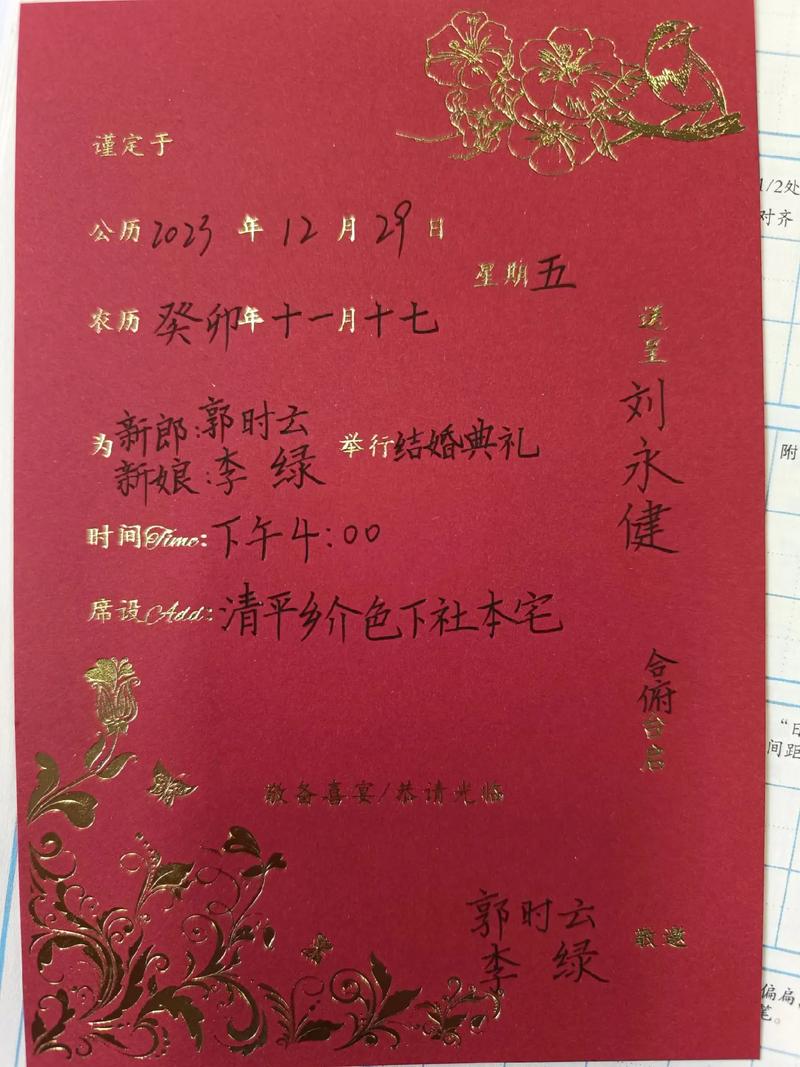 谨定于
公历2023年12月29日
星期五
农历癸卯年十一月十七
为新郎:郭时云
新娘:李绿
举行结婚典礼
时间Time:下午4:00
席设Add:清平乡介色下社本宅
敬备喜宴/恭请光临
送呈
刘永健
合俯
台启
郭时云
李绿
敬邀
1/2处
对齐
附
“日
间距
偏扁
笔。